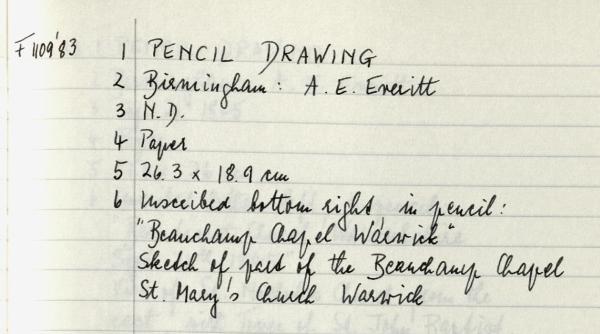 F1109'83 1 PENCIL DRAWING
2 Birmingham: A. E. Everitt
3 N.D.
4 Paper
5 26.3 x 18.9 cm
6 Inscribed bottom right, in pencil:
"Beauchamp Chapel Warwick"
Sketch of part of the Beauchamp Chapel
St. Mary's Church Warwick